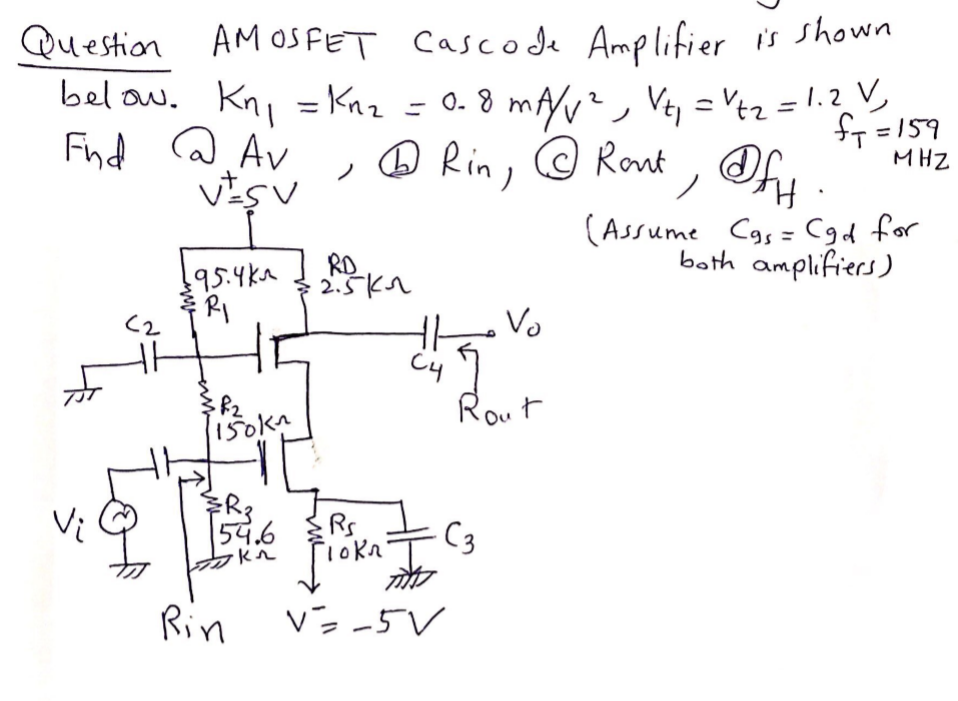 Question AMOSFET Cascode Amplifier is shown
below. Kn1 = Kn2 = 0.8 mA/V², Vt1 = Vt2 = 1.2 V,
fT = 159
MHZ
Find ⓐ Av , ⓑ Rin, ⓒ Rout, ⓓ fH.
(Assume Cgs = Cgd for
both amplifiers)
V+=5V
95.4kΩ
R1
RD
2.5KΩ
C2
C4
Vo
Rout
R2
150kΩ
Vi
R3
54.6
KΩ
Rs
10KΩ
C3
Rin
V- = -5V